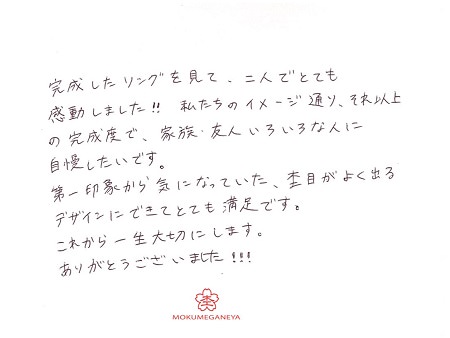 完成したリングを見て、二人でとても
感動しました!! 私たちのイメージ通り、それ以上
の完成度で、家族・友人いろいろな人に
自慢したいです。
第一印象から気になっていた、杢目がよく出る
デザインにできてとても満足です。
これから一生大切にします。
ありがとうございました!!!
杢
MOKUMEGANEYA